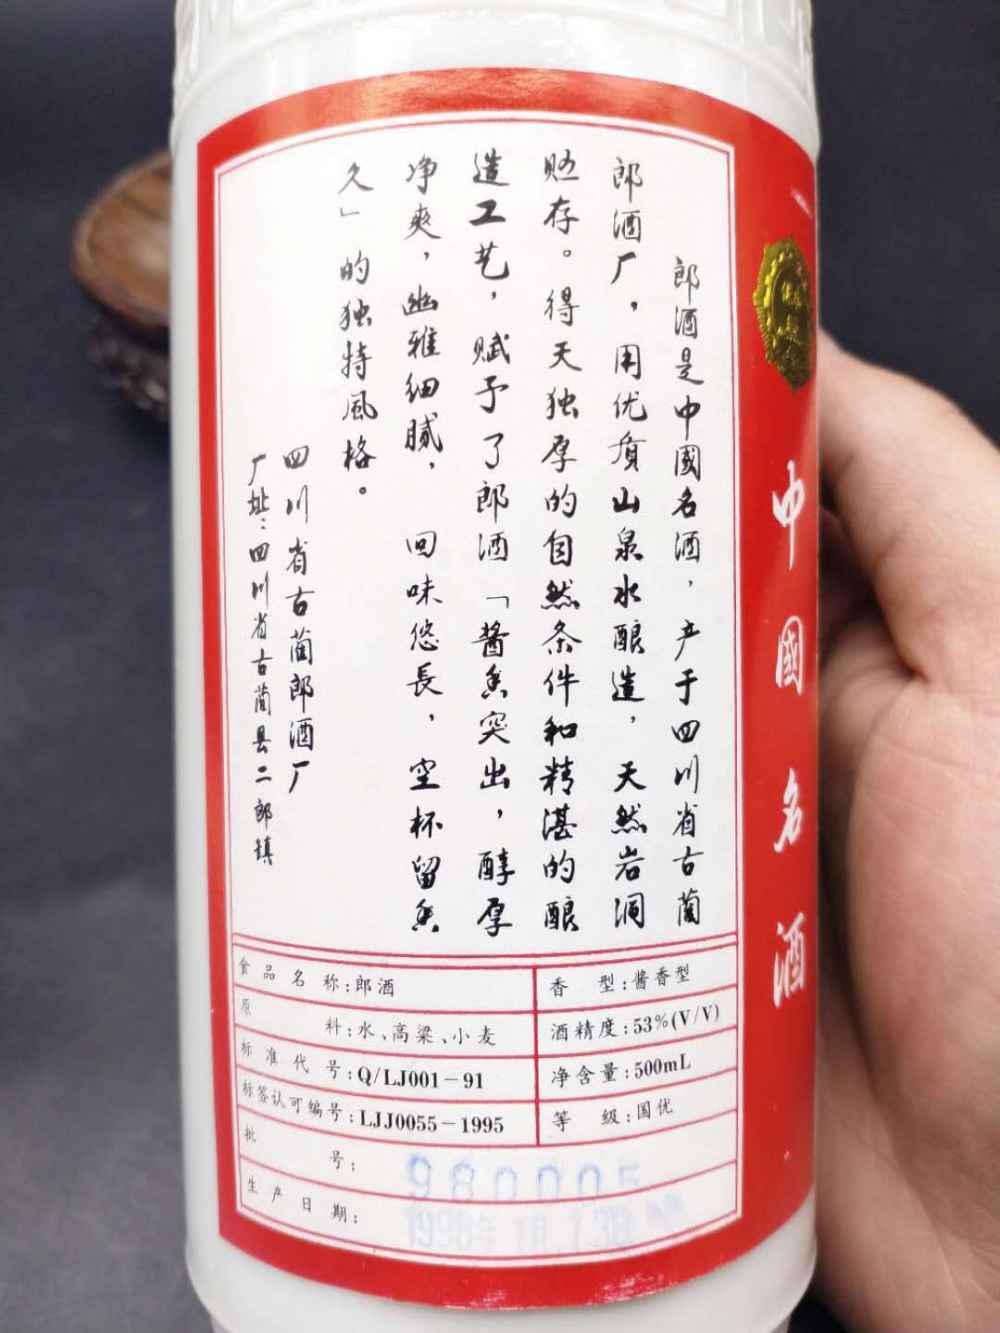 郎酒是中國名酒，产于四川省古蔺
郎酒厂，用优质山泉水酿造，天然岩洞
贮存。得天独厚的自然条件和精湛的酿
造工艺，赋予了郎酒「酱香突出，醇厚
净爽，幽雅细腻，回味悠長，空杯留香
久」的独特風格。
四川省古蔺郎酒厂
厂址：四川省古蔺县二郎镇
中國名酒
食品名称：郎酒
香型：酱香型
原料：水、高粱、小麦
酒精度：53%(V/V)
标准代号：Q/LJ001－91
净含量：500mL
标签认可编号：LJJ0055－1995
等级：国优
批号：980005
生产日期：1998年